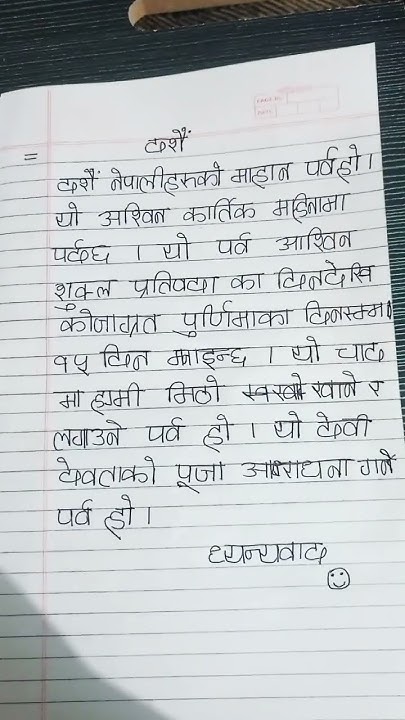 =
दशैं
दशैं नेपालीहरुको माहान पर्वहो।
यो अश्विन कार्तिक महिनामा
पर्दछ । यो पर्व आश्विन
शुक्ल प्रतिपदा का दिनदेखि
कोजाग्रत पुर्णिमाका दिनसम्म
१५ दिन मनाइन्छ । यो चाद
मा हामी मिठो खाने र
लगाउने पर्व हो । यो देवी
देवताको पूजा आराधना गर्ने
पर्व हो ।
ध्यन्यवाद